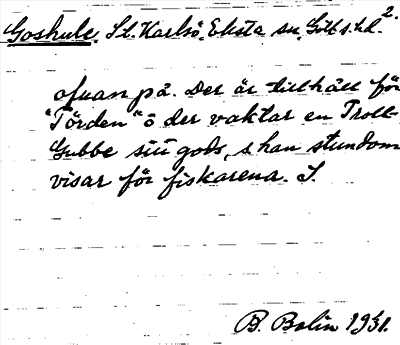 Goshule. St. Karlsö, Eksta sn, Gotl. s. hd. 2.
ofvan på. Der är tillhåll för
"Törden" ö der vaktar en Troll-
Gubbe sitt gods, s han stundom
visar för fiskarena. S.
B. Bolin 1931.